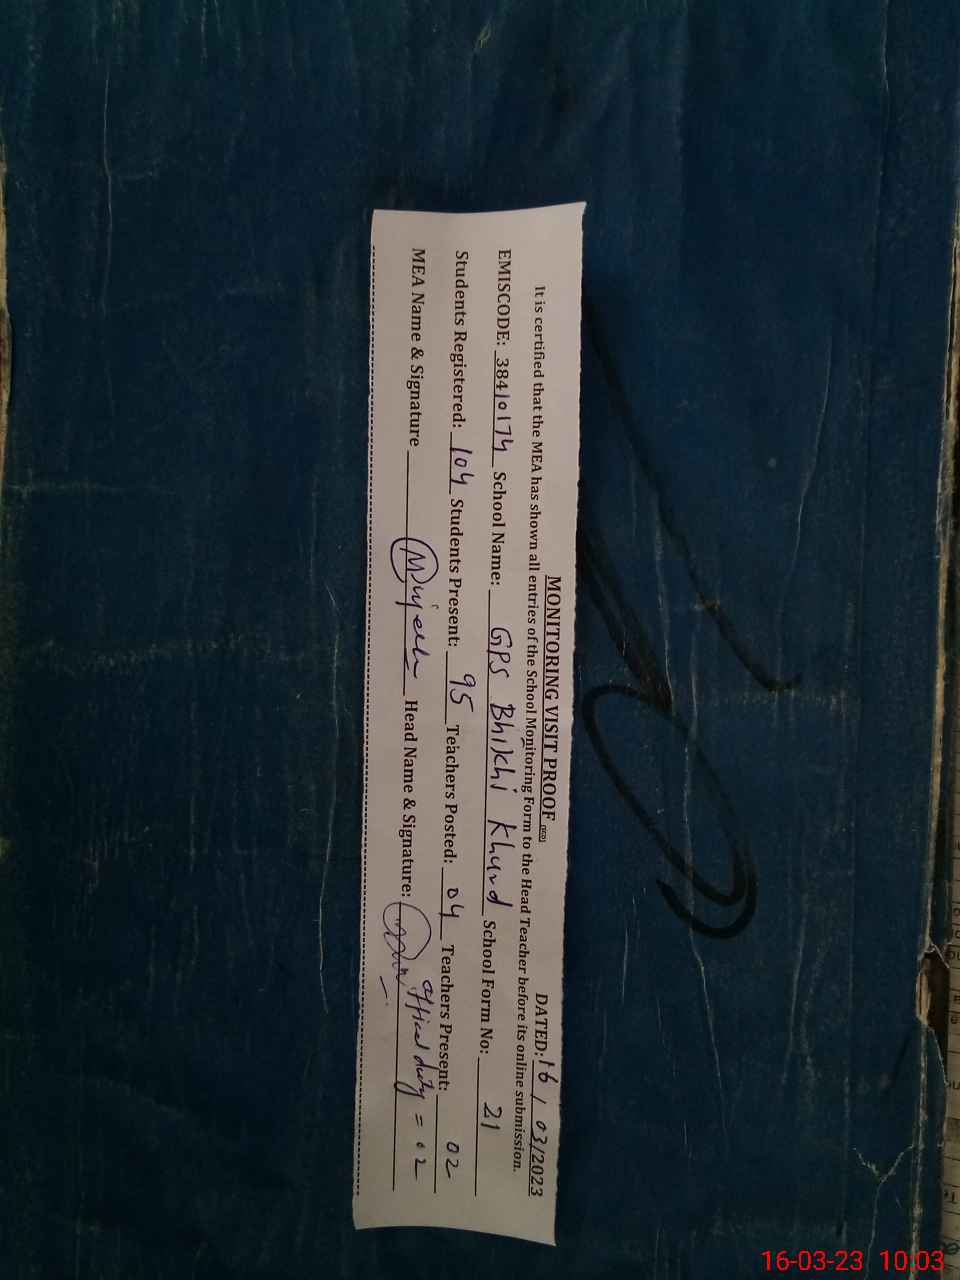 MONITORING VISIT PROOF (SED) DATED: 16 / 03/2023
It is certified that the MEA has shown all entries of the School Monitoring Form to the Head Teacher before its online submission.
EMISCODE: 38410174 School Name: GPS Bhikhi Khurd School Form No: 21
Students Registered: 104 Students Present: 95 Teachers Posted: 04 Teachers Present: 02
offical duty = 02
MEA Name & Signature Head Name & Signature:
16-03-23 10:03